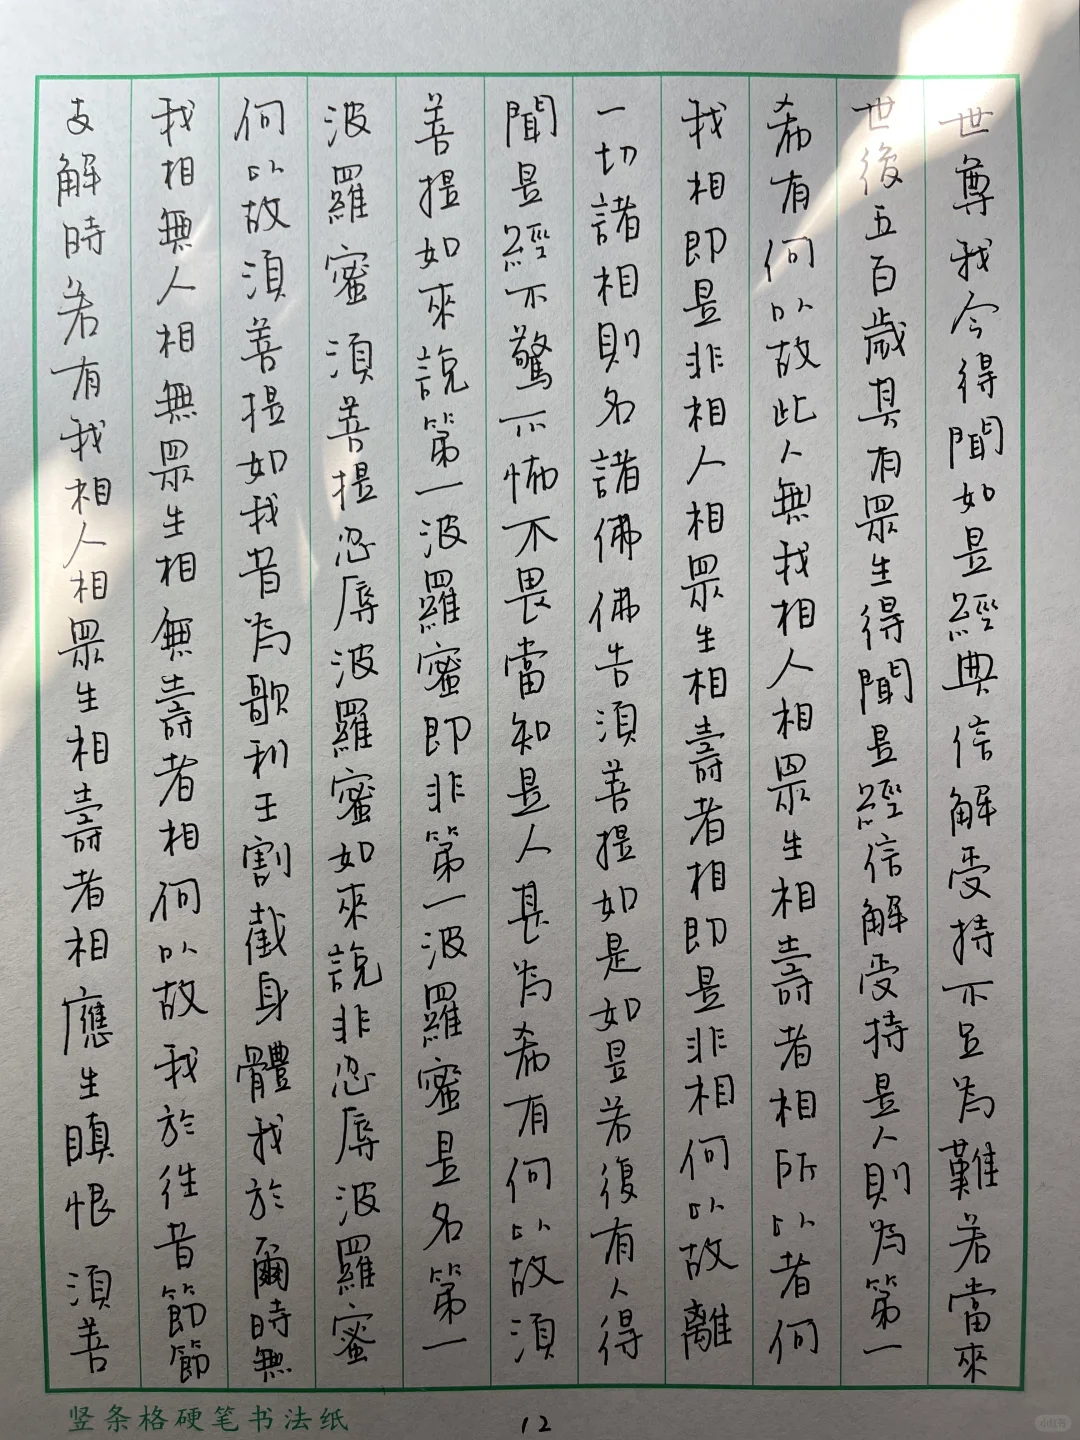 世尊我今得聞如是經典信解受持不足為難若當來
世後五百歲其有眾生得聞是經信解受持是人則為第一
希有何以故此人無我相人相眾生相壽者相所以者何
我相即是非相人相眾生相壽者相即是非相何以故離
一切諸相則名諸佛佛告須菩提如是如是若復有人得
聞是經不驚不怖不畏當知是人甚為希有何以故須
菩提如來說第一波羅蜜即非第一波羅蜜是名第一
波羅蜜須菩提忍辱波羅蜜如來說非忍辱波羅蜜
何以故須菩提如我昔為歌利王割截身體我於爾時無
我相無人相無眾生相無壽者相何以故我於往昔節節
支解時若有我相人相眾生相壽者相應生瞋恨須菩
竖条格硬笔书法纸
12
小红书